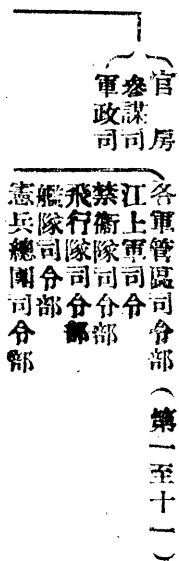 官房
參謀司
軍政司
各軍管區司令部（第一至十一）
江上軍司令
禁衞隊司令部
飛行隊司令部
艦隊司令部
憲兵總團司令部